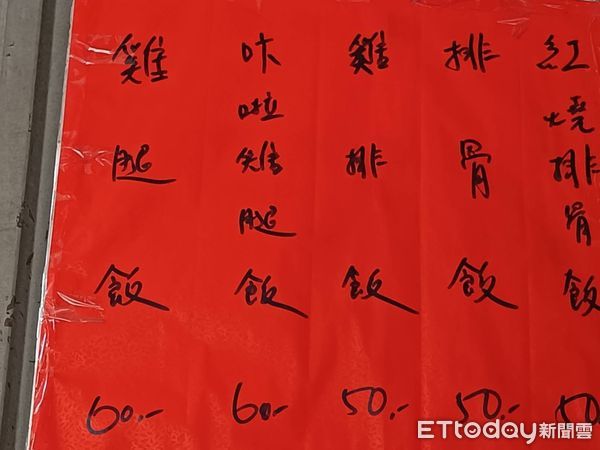 紅燒排骨飯 50
排骨飯 50.-
雞排飯 50.-
咔啦雞腿飯 60.-
雞腿飯 60.-
ETtoday新聞雲